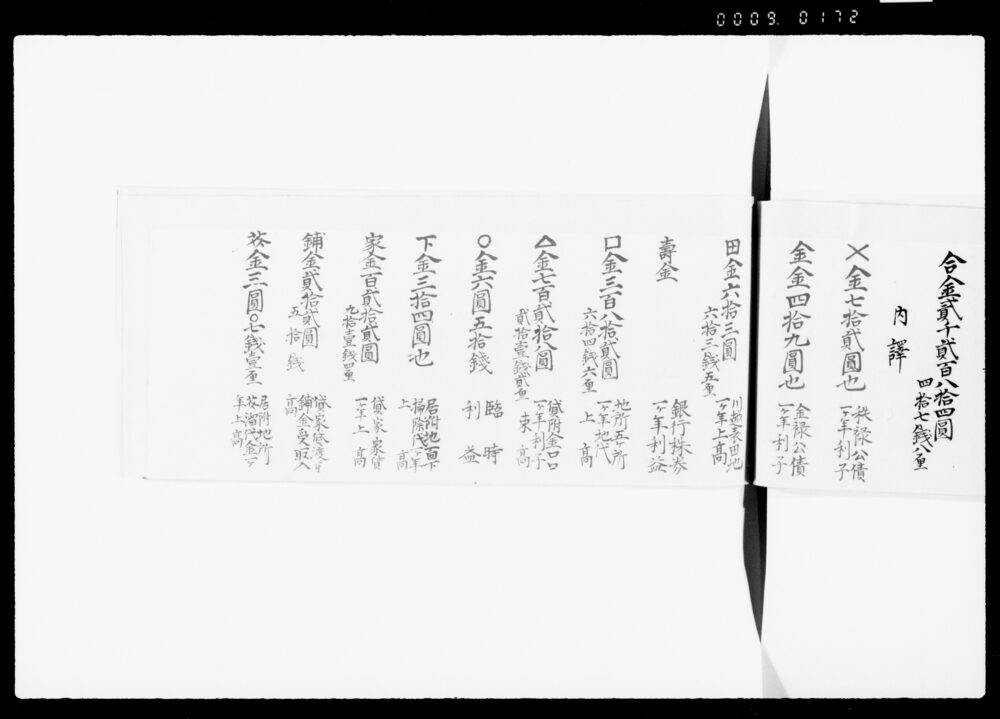 0009 0172
合金貳千貳百八拾四圓
四拾七錢八厘
内譯
×金七拾貳圓也
秩禄公債
一ヶ年利子
金金四拾九圓也
金禄公債
一ヶ年利子
田金六拾三圓
六拾三錢五厘
川越表田地
一ヶ年上高
壽金
銀行株券
一ヶ年利益
口金三百八拾貳圓
六拾四錢六厘
地所五ヶ所
一ヶ年地代
上高
△金七百貳拾八圓
貳拾壹錢貳厘
貸附金口口
一ヶ年利子
束高
〇金六圓五拾錢
臨時
利益
下金三拾四圓也
居附地面下
掃除代一ヶ年
上高
家金百貳拾貳圓
九拾壹錢四厘
貸家家賃
一ヶ年上高
鋪金貳拾貳圓
五拾錢
鋪金受取入
高
芥金三圓〇七錢壹厘
居附地所
芥溜代金一ヶ
年上高